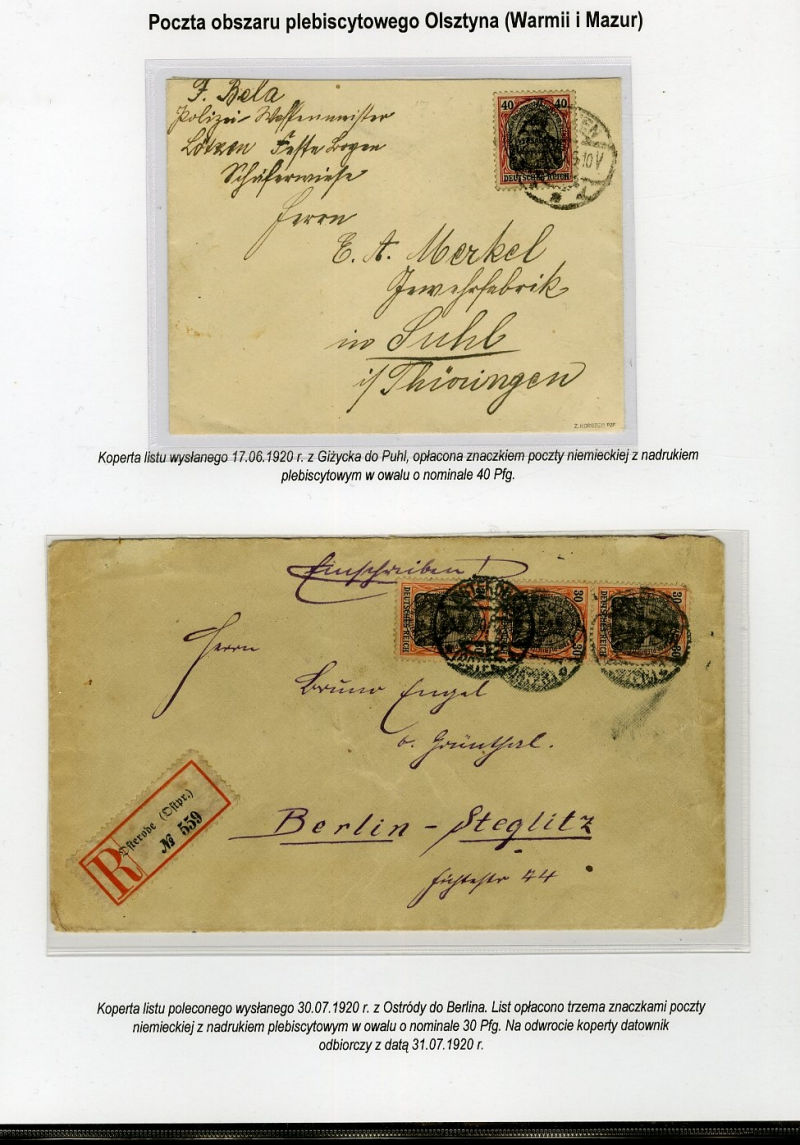 Poczta obszaru plebiscytowego Olsztyna (Warmii i Mazur)
F. Bela
Polizei-Waffenmeister
Lötzen Feste Boyen
Schäferwiese
40 40
DEUTSCHES REICH
10V
Herrn
E. A. Merkel
Gewehrfabrik
in Suhl
i/Thüringen
Z. KORSZEŃ PZF
Koperta listu wysłanego 17.06.1920 r. z Giżycka do Puhl, opłacona znaczkiem poczty niemieckiej z nadrukiem
plebiscytowym w owalu o nominale 40 Pfg.
Einschreiben!
30
DEUTSCHES REICH
30
30
30
Herrn
Bruno Engel
b. Grünthal.
Berlin-Steglitz
Fichtestr 44
R
Osterode (Ostpr.)
№ 559
Koperta listu poleconego wysłanego 30.07.1920 r. z Ostródy do Berlina. List opłacono trzema znaczkami poczty
niemieckiej z nadrukiem plebiscytowym w owalu o nominale 30 Pfg. Na odwrocie koperty datownik
odbiorczy z datą 31.07.1920 r.